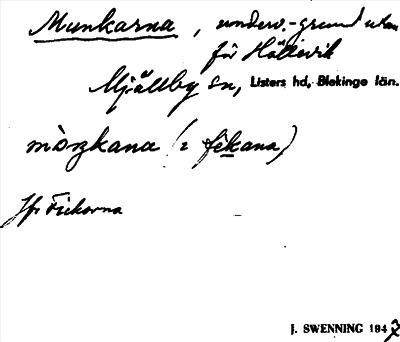 Munkarna, underv.-grund utan
för Hällevik
Mjällby sn, Listers hd, Blekinge län.
mòŋkana (: fèkana)
Jfr Fickorna
J. SWENNING 1947